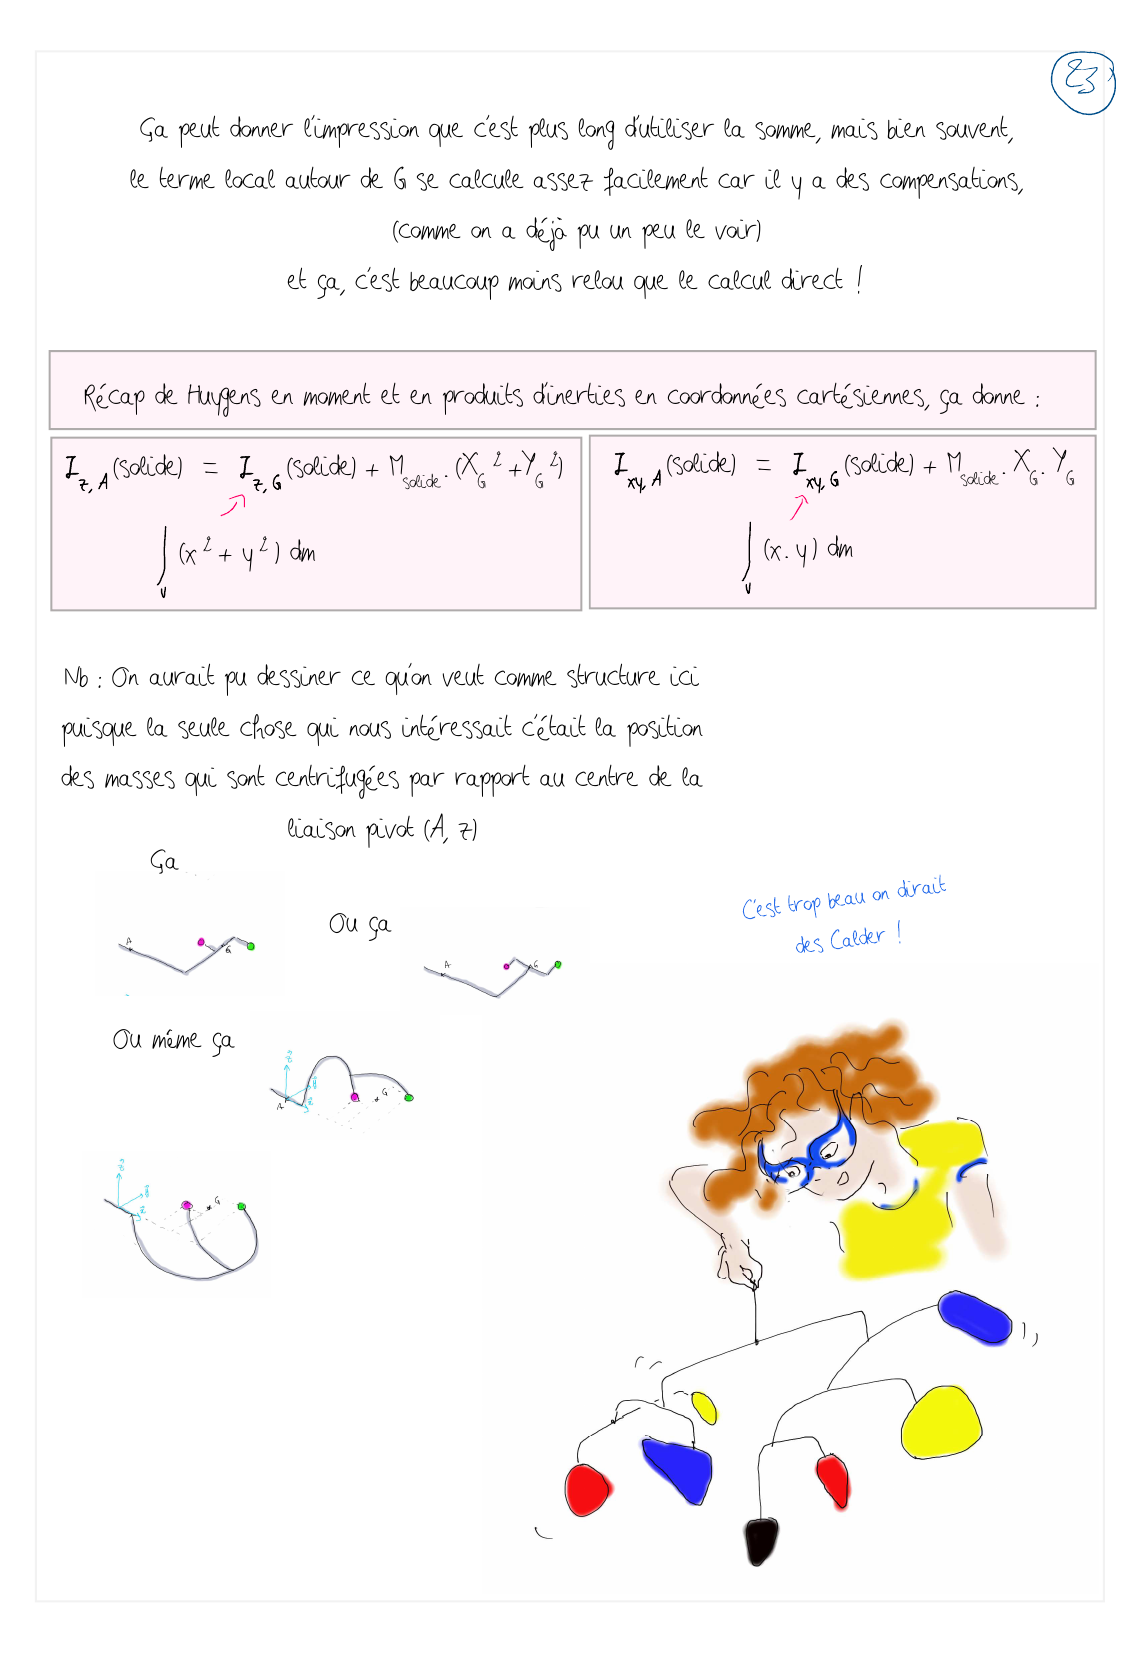 23
Ça peut donner l'impression que c'est plus long d'utiliser la somme, mais bien souvent,
le terme local autour de G se calcule assez facilement car il y a des compensations,
(comme on a déjà pu un peu le voir)
et ça, c'est beaucoup moins relou que le calcul direct !
Récap de Huygens en moment et en produits d'inerties en coordonnées cartésiennes, ça donne :
I_{z, A} (solide) = I_{z, G} (solide) + M_{solide} . (X_G² + Y_G²)
∫_V (x² + y²) dm
I_{xy, A} (solide) = I_{xy, G} (solide) + M_{solide} . X_G . Y_G
∫_V (x . y) dm
Nb : On aurait pu dessiner ce qu'on veut comme structure ici
puisque la seule chose qui nous intéressait c'était la position
des masses qui sont centrifugées par rapport au centre de la
liaison pivot (A, z)
Ça
A
G
Ou ça
A
G
C'est trop beau on dirait
des Calder !
Ou même ça
z
y
x
A
G
z
y
x
G